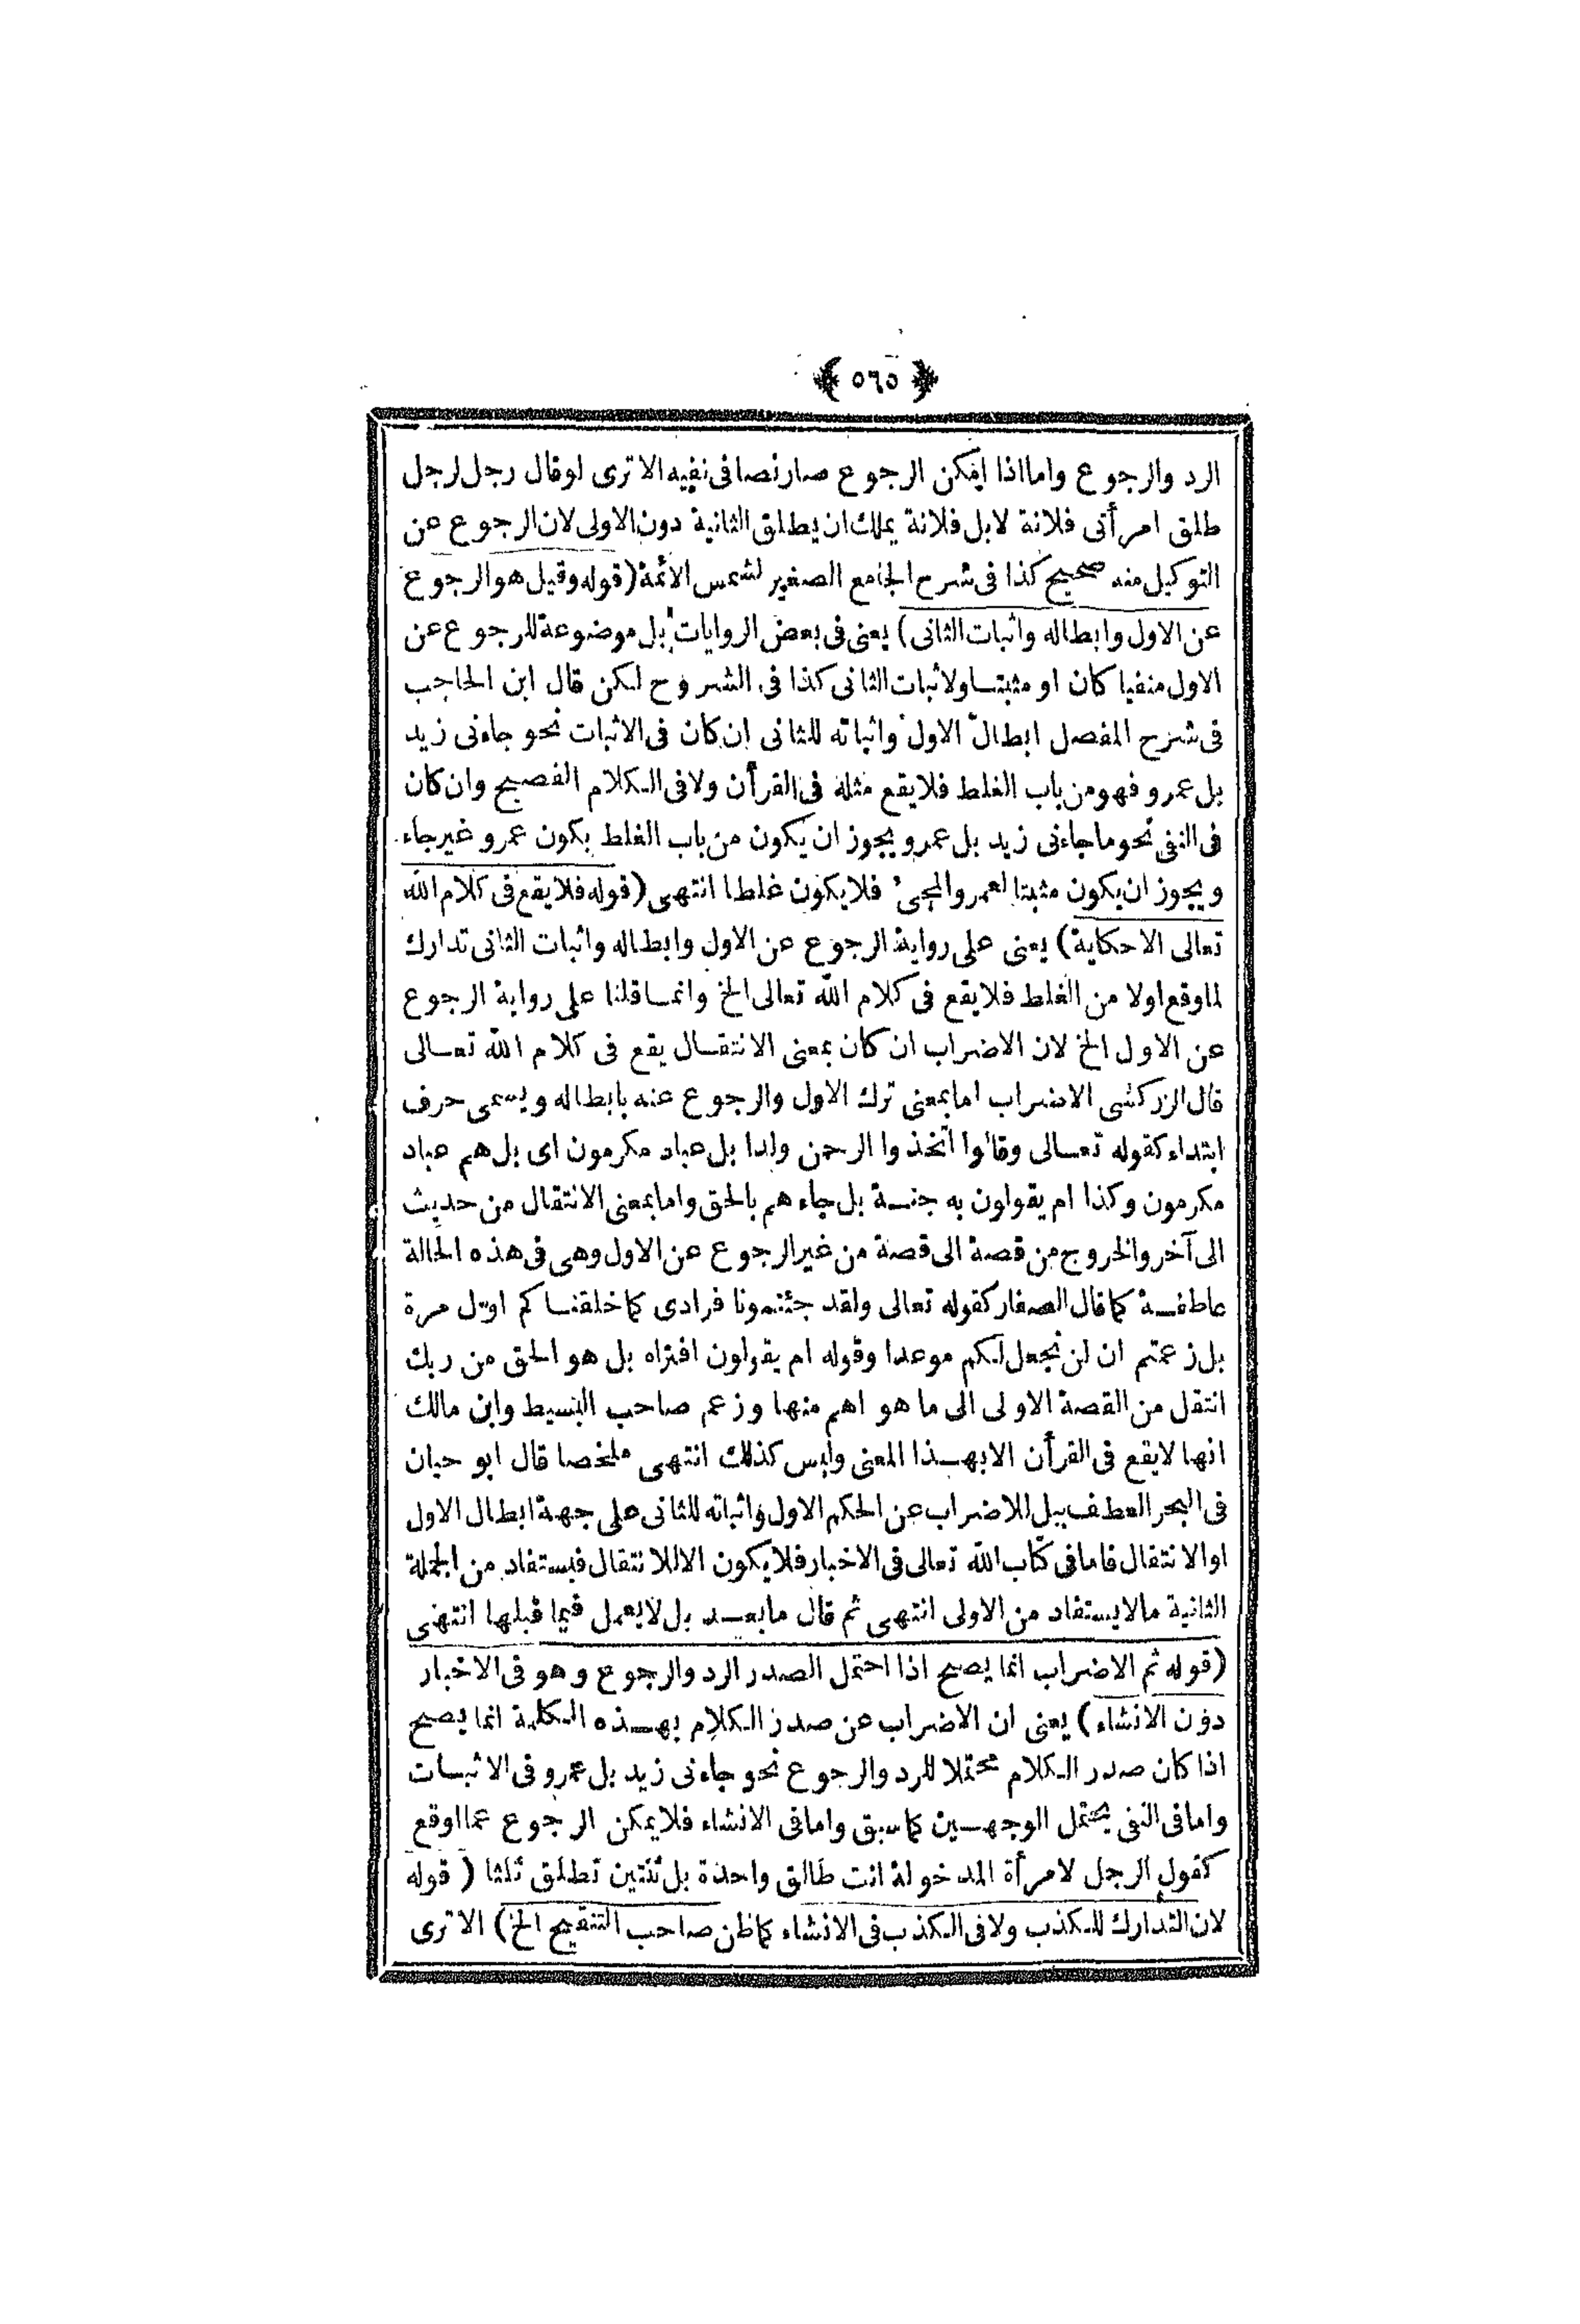 ﴿ ٥٦٥ ﴾
الرد والرجوع واما اذا امكن الرجوع صار نصا فى نفيه الا ترى لو قال رجل لرجل
طلق امرأتى فلانة لا بل فلانة يملك ان يطلق الثانية دون الاولى لان الرجوع عن
التوكيل منه صحيح كذا فى شرح الجامع الصغير لشمس الائمة (قوله وقيل هو الرجوع
عن الاول وابطاله واثبات الثانى) يعنى فى بعض الروايات بل موضوعة للرجوع عن
الاول منفيا كان او مثبتا ولاثبات الثانى كذا فى الشروح لكن قال ابن الحاجب
فى شرح المفصل ابطال الاول واثباته للثانى ان كان فى الاثبات نحو جاءنى زيد
بل عمرو فهو من باب الغلط فلا يقع مثله فى القرأن ولا فى الكلام الفصيح وان كان
فى النفى نحو ما جاءنى زيد بل عمرو يجوز ان يكون من باب الغلط بكون عمرو غير جاء
ويجوز ان يكون مثبتا لعمرو المجىء فلا يكون غلطا انتهى (قوله فلا يقع فى كلام الله
تعالى الا حكاية) يعنى على رواية الرجوع عن الاول وابطاله واثبات الثانى تدارك
لما وقع اولا من الغلط فلا يقع فى كلام الله تعالى الخ وانما قلنا على رواية الرجوع
عن الاول الخ لان الاضراب ان كان بمعنى الانتقال يقع فى كلام الله تعالى
قال الزركشى الاضراب اما بمعنى ترك الاول والرجوع عنه بابطاله ويسمى حرف
ابتداء كقوله تعالى وقالوا اتخذوا الرحمن ولدا بل عباد مكرمون اى بل هم عباد
مكرمون وكذا ام يقولون به جنة بل جاءهم بالحق واما بمعنى الانتقال من حديث
الى آخر والخروج من قصة الى قصة من غير الرجوع عن الاول وهى فى هذه الحالة
عاطفة كما قال الصفار كقوله تعالى ولقد جئتمونا فرادى كما خلقناكم اول مرة
بل زعمتم ان لن نجعل لكم موعدا وقوله ام يقولون افتراه بل هو الحق من ربك
انتقل من القصة الاولى الى ما هو اهم منها وزعم صاحب البسيط وابن مالك
انها لا يقع فى القرأن الا بهذا المعنى وليس كذلك انتهى ملخصا قال ابو حيان
فى البحر العطف ببل للاضراب عن الحكم الاول واثباته للثانى على جهة ابطال الاول
او الانتقال فاما فى كتاب الله تعالى فى الاخبار فلا يكون الا للانتقال فيستفاد من الجملة
الثانية ما لا يستفاد من الاولى انتهى ثم قال ما بعد بل لا يعمل فيما قبلها انتهى
(قوله ثم الاضراب انما يصح اذا احتمل الصدر الرد والرجوع وهو فى الاخبار
دون الانشاء) يعنى ان الاضراب عن صدر الكلام بهذه الكلمة انما يصح
اذا كان صدر الكلام محتملا للرد والرجوع نحو جاءنى زيد بل عمرو فى الاثبات
واما فى النفى يحتمل الوجهين كما سبق واما فى الانشاء فلا يمكن الرجوع عما اوقع
كقول الرجل لامرأة المدخولة انت طالق واحدة بل ثنتين تطلق ثلثا (قوله
لان التدارك للكذب ولا فى الكذب فى الانشاء كما ظن صاحب التنقيح الخ) الا ترى